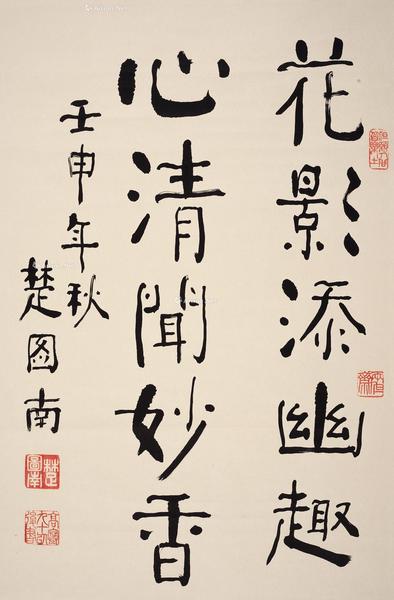 花影添幽趣
心清聞妙香
壬申年秋
楚图南
楚圖南